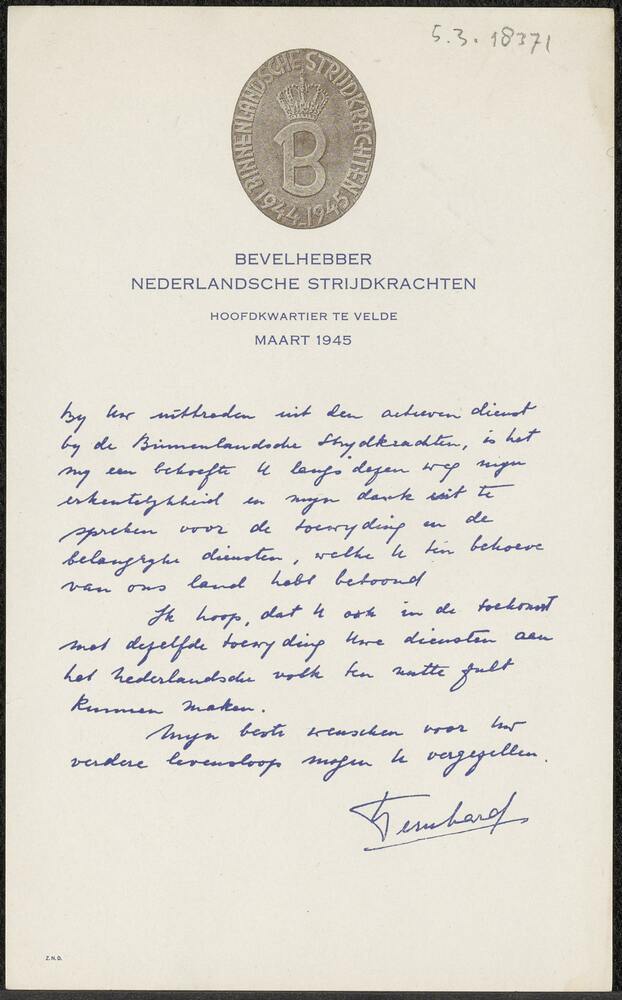 5.3. 18371
BINNENLANDSCHE STRIJDKRACHTEN
B
1944-1945
BEVELHEBBER
NEDERLANDSCHE STRIJDKRACHTEN
HOOFDKWARTIER TE VELDE
MAART 1945
By Uw uittreden uit den actieven dienst
by de Binnenlandsche Strydkrachten, is het
my een behoefte U langs dezen weg myn
erkentelykheid en myn dank uit te
spreken voor de toewyding en de
belangryke diensten, welke U ten behoeve
van ons land hebt betoond
Ik hoop, dat U ook in de toekomst
met dezelfde toewyding Uwe diensten aan
het Nederlandsche volk ten nutte zult
kunnen maken.
Myn beste wenschen voor Uw
verdere levensloop mogen U vergezellen.
Bernhard
Z.N.D.